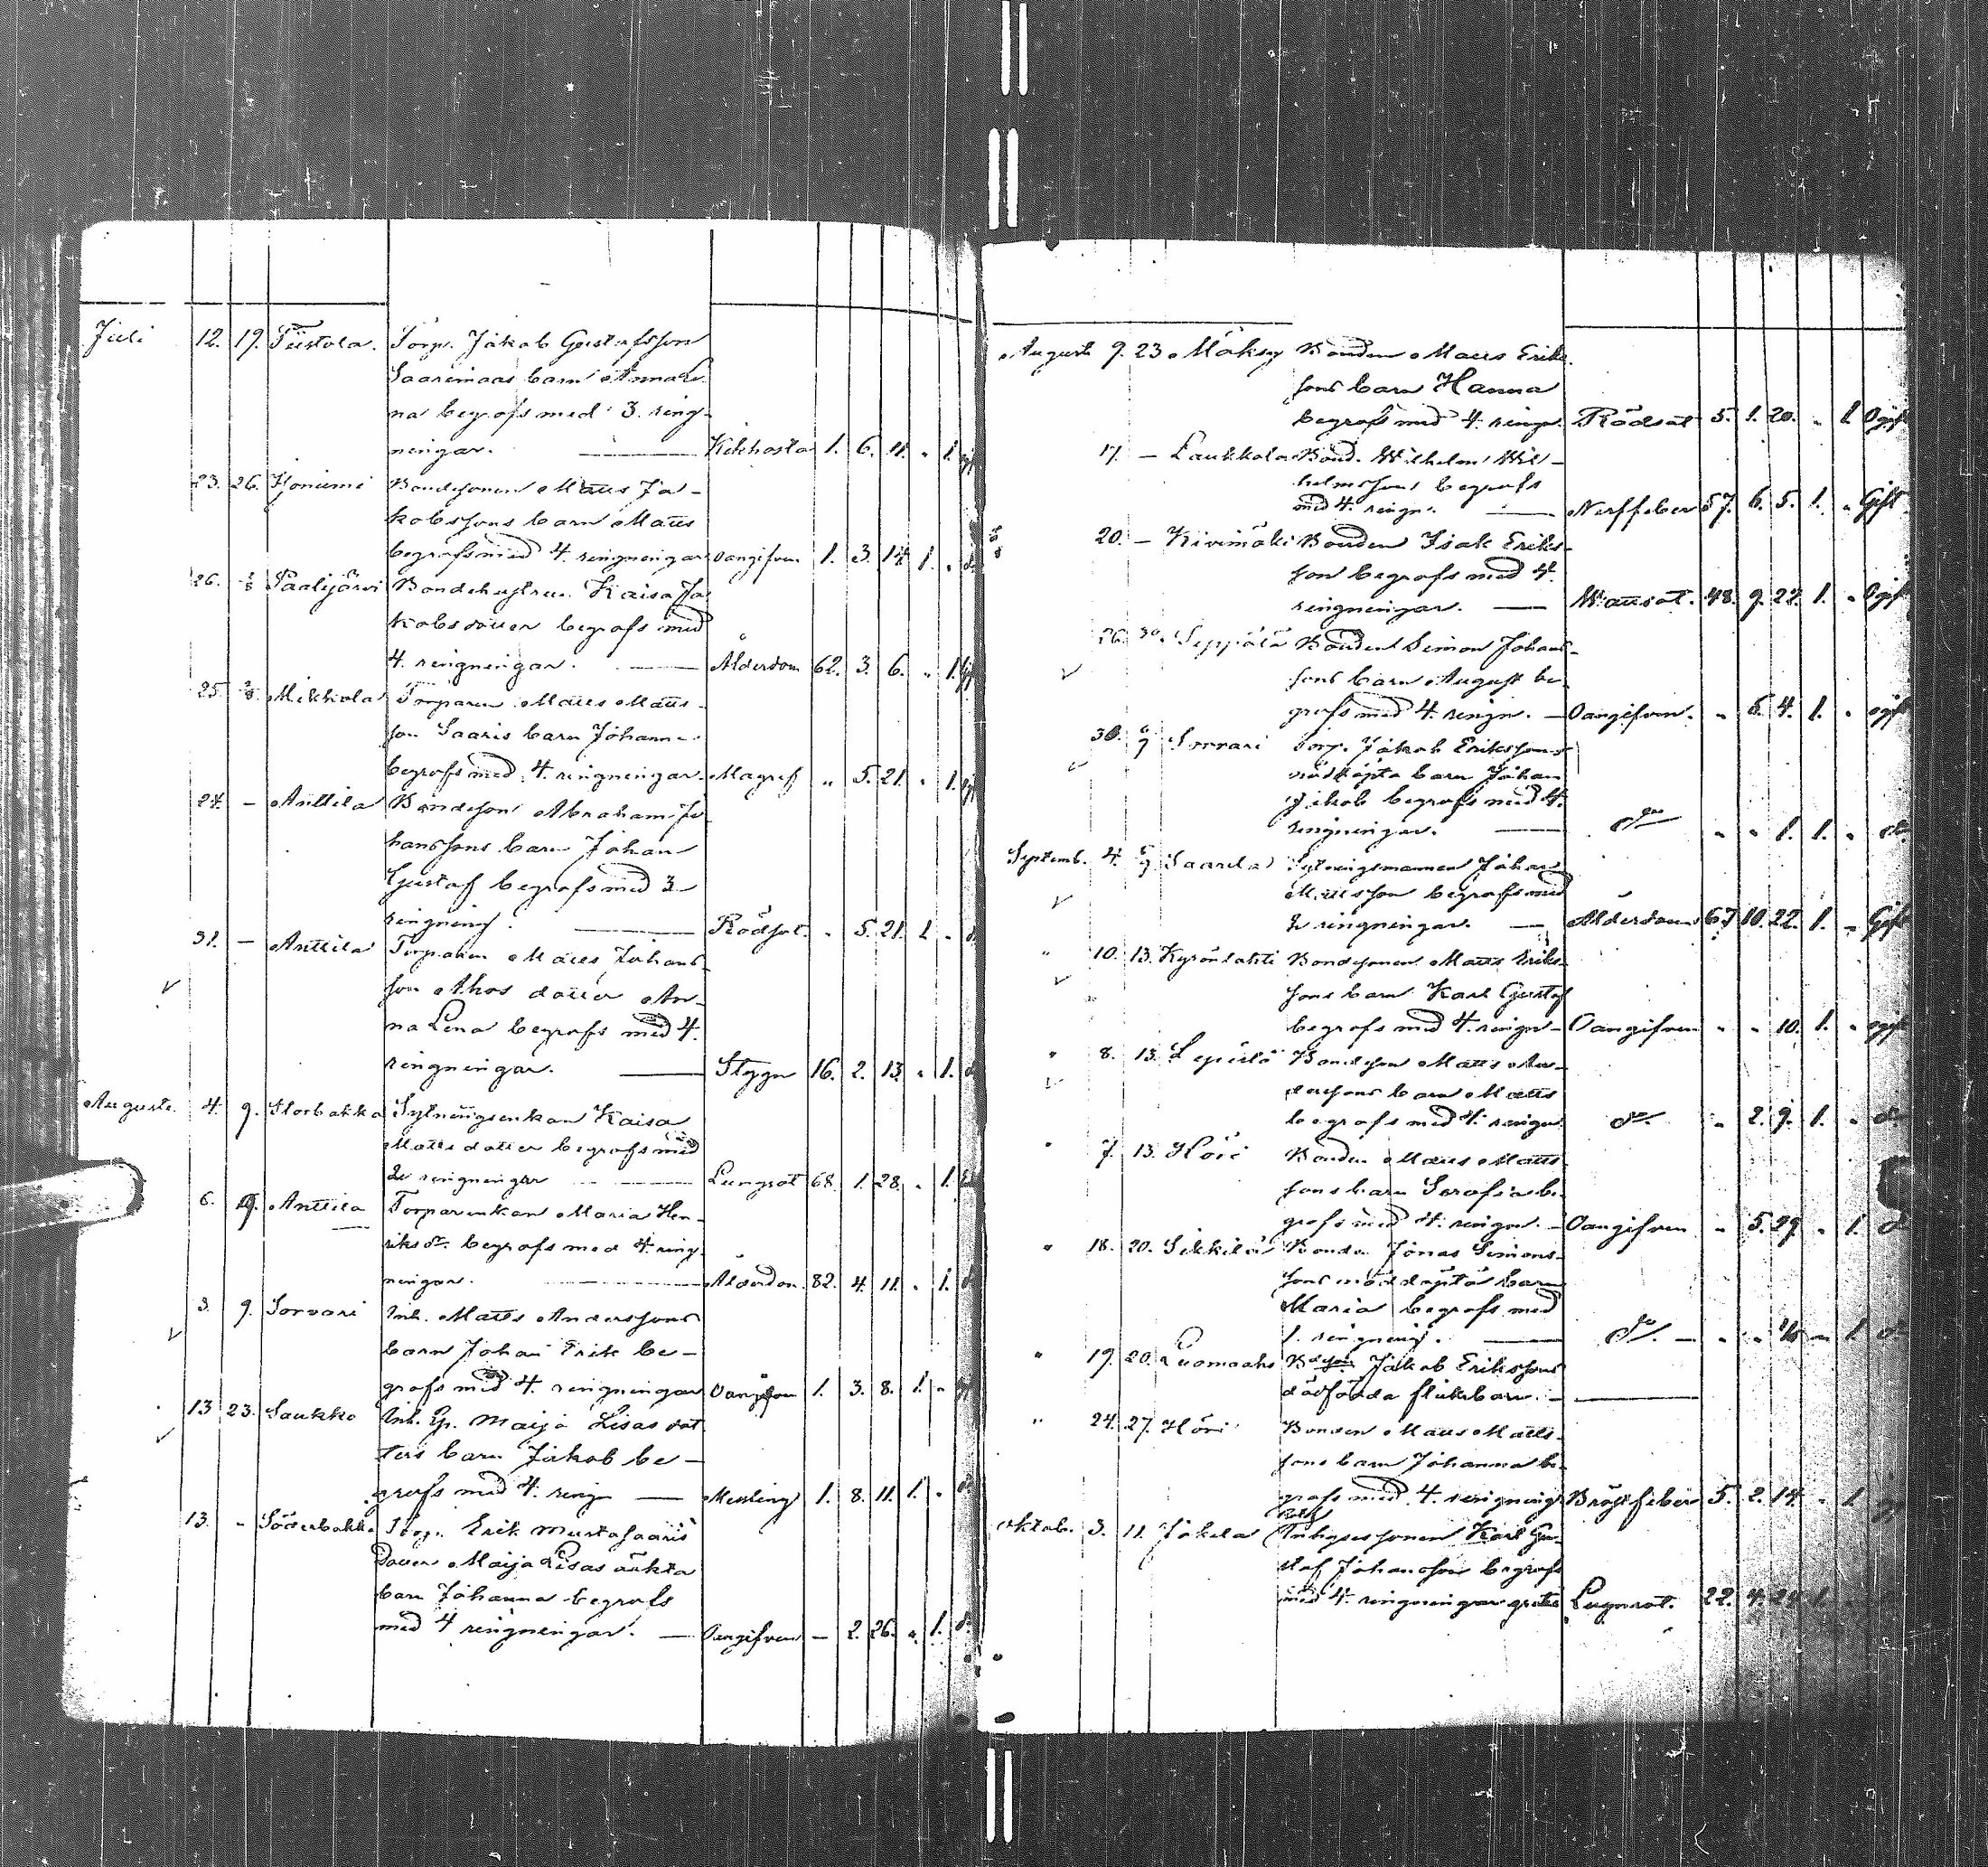 Juli 12. 19. Tiistola. Torp. Jakob Gustafsson
Saarimaas barn Anna Le
na begrofs med 3. ring-
ningar. Kikhosta 1. 6. 11. " 1.
23. 26. Bondesonen Matts Ja-
kobssons barn Matts
begrofs med 4. ringningar oangifven 1. 3. 14 1. "
26. Paalijärvi Bondehustrun Kaisa Ja
kobsdotter begrofs med
4. ringningar. Ålderdom 62. 3. 6. " 1.
25. Mikkola Torparen Matts Matts
son Saaris barn Johanna
begrofs med 4. ringningar. Magref " 5. 21. " 1.
24. – Anttila Bondeson Abraham Jo
hanssons barn Johan
Gustaf begrofs med 3
ringning. Rödsot. " 5. 21. 1. "
31. – Anttila Torparen Matts Johans
son Ahos dotter An-
na Lena begrofs med 4.
ringningar. Stygn 16. 2. 13. " 1.
Augusti. 4. 9. Storbakka Sytningsenkan Kaisa
Matts dotter begrofs med
2 ringningar Lungsot 68. 1. 28. " 1.
6. 9. Anttila Torparenkan Maria Hen-
riksdr. begrofs med 4. ring
ningar. Ålderdom. 82. 4. 11. " 1.
3. 9. Sorvari Inh. Matts Anderssons
barn Johan Erik be-
grofs med 4. ringningar Oangifven 1. 3. 8. 1. "
13 23. Saukko Inh. Maija Lisas dot
ters barn Jakob be-
grofs med 4. ring Messling 1. 8. 11. 1. "
13. " Söderbakka Torp. Erik Mustasaaris
dotter Maija Lisas oäkta
barn Johanna begrofs
med 4 ringningar. Oangifven – 2. 26. " 1.
Augusti 9. 23 Mäksy Bonden Matts Eriks
sons barn Hanna
begrofs med 4. ringn. Rödsot 5. 1. 20. " 1 Ogift
17. – Laukkola Bond. Wilhelm Wil-
helmsson begrofs
med 4. ringn. Nerffeber 57. 6. 5. 1. " Gift
20. – Kivimäki Bonden Isak Eriks-
son begrofs med 4.
ringningar. Wattsot. 48. 9. 22. 1. "
26. 30. Seppälä Bonden Simon Johans-
sons barn August be-
grofs med 4. ringn. Oangifven. " 5. 4. 1. " ogift
30. Sorvari Torp. Jakob Erikssons
nöddöpta barn Johan
Jakob begrofs med 4.
ringningar. do " " 1. 1. " do
Septemb. 4. Saarela Sytningsmannen Johan
Mattsson begrofs med
2 ringningar. Ålderdom 67 10. 22. 1. " Gift
" 10. 13. Kyrönlahti Bondesonen Matts Eriks-
sons barn Karl Gustaf
begrofs med 4. ringn Oangifven " " 10. 1. " ogift
" 8. 13. Bondeson Matts An-
derssons barn Matts
begrofs med 4. ringn. do. " 2. 9. 1. " do
" 7. 13. Höri Bonden Matts Matts
sons barn Serafia be-
grofs med 4. ringn. Oangifven " 5. 29. " 1. do
" 18. 20. Sikkilä Bonden Jonas Simons-
sons nöddöpta barn
Maria begrofs med
1. ringning. do. " " " 1. do
" 19. 20. Luomaaho Bdeson Jakob Erikssons
dödfödda flickbarn.
" 24. 27. Höri Bonden Matts Matts-
sons barn Johanna be-
grofs med 4. ringning Bröstfeber 5. 2. 14. " 1.
Oktob. 3. 11. Jakola Inhysessonen Karl Gu-
staf Johansson begrofs
med 4. ringningar gratis Lungsot. 22. 4. 24 1.